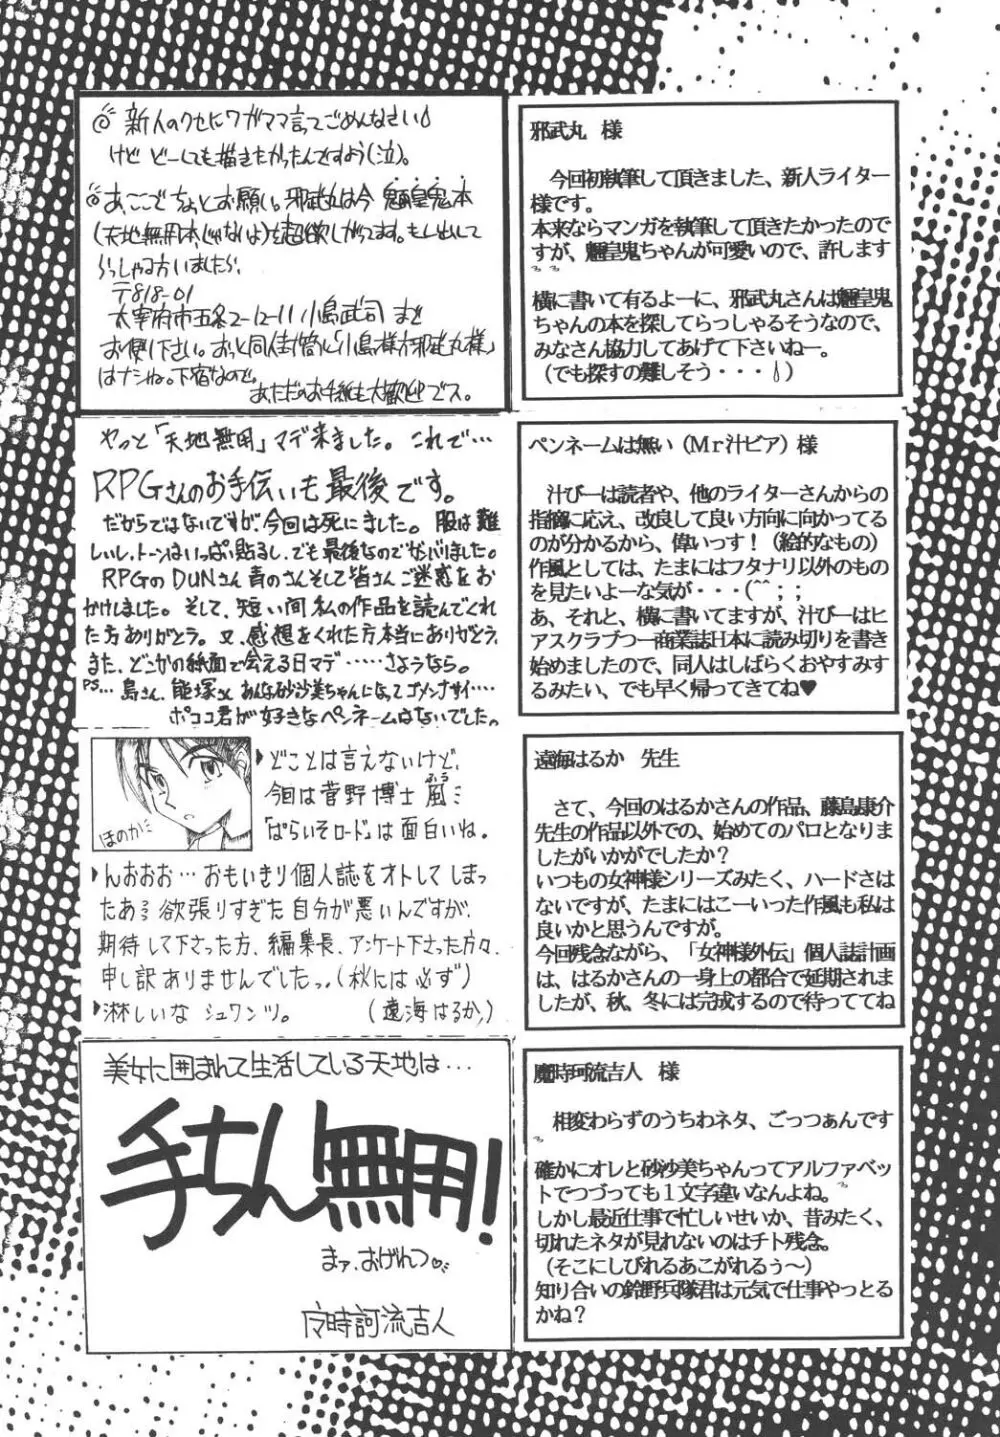 ◎新人のクセにワガママ言ってごめんなさい
けど どーしても描きたかったんですよう(泣)。
◎あ、ここでちょっとお願い。邪武丸は今 魎皇鬼本
(天地無用本じゃないよ)を超欲しがってます。もし出して
らっしゃる方いましたら、
〒818-01
太宰府市五条2-12-11 小島武司 まで
お便り下さい。おっと同人封筒に「小島様方邪武丸様」
はナシね。下宿なので。
あ、ただのお手紙も大歓迎デス。
邪武丸 様
今回初執筆して頂きました、新人ライター
様です。
本来ならマンガを執筆して頂きたかったので
すが、魎皇鬼ちゃんが可愛いので、許します
横に書いて有るよーに、邪武丸さんは魎皇鬼
ちゃんの本を探してらっしゃるそうなので、
みなさん協力してあげて下さいねー。
(でも探すの難しそう・・・)
やっと「天地無用」マデ来ました。これで…
RPGさんのお手伝いも最後です。
だからではないですが、今回は死にました。服は難
しいし、トーンはいっぱい貼るし、でも最後なのでがんバりました。
RPGのDUNさん青のさんそして皆さんご迷惑をお
かけしました。そして、短い間私の作品を読んでくれ
た方ありがとう。又、感想をくれた方本当にありがとう。
また、どこかの紙面で会える日マデ……さようなら。
PS…島さん、熊塚さんあんな砂沙美ちゃんになってゴメンナサイ…
ポココ君が好きなペンネームはないでした。
ペンネームは無い(Mr汁ビア)様
汁びーは読者や、他のライターさんからの
指摘に応え、改良して良い方向に向かってる
のが分かるから、偉いっす!(絵的なもの)
作風としては、たまにはフタナリ以外のもの
を見たいよーな気が・・・(^^;;
あ、それと、横に書いてますが、汁びーはヒ
アスクラブつー商業誌日本に読み切りを書き
始めましたので、同人はしばらくおやすみす
るみたい、でも早く帰ってきてね♥
ほのか
どことは言えないけど、
今回は菅野博士風ふう
「ぱらいそロード」は面白いね。
んおおお…おもいきり個人誌をオトしてしまっ
たあぅ欲張りすぎた自分が悪いんですが、
期待して下さった方、編集長、アンケート下さった方々、
申し訳ありませんでしたっ。(秋には必ず)
淋しいな シュワンツ。 (遠海はるか)
遠海はるか 先生
さて、今回のはるかさんの作品、藤島康介
先生の作品以外での、始めてのパロとなりま
したがいかがでしたか?
いつもの女神様シリーズみたく、ハードさは
ないですが、たまにはこーいった作風も私は
良いかと思うんですが。
今回残念ながら、「女神様外伝」個人誌計画
は、はるかさんの一身上の都合で延期されま
したが、秋、冬には完成するので待っててね
美女に囲まれて生活している天地は…
手ちん無用!
まァ、おげれつ
魔時訶流吉人
魔時珂流吉人 様
相変わらずのうちわネタ、ごっつぁんです
確かにオレと砂沙美ちゃんってアルファベッ
トでつづっても1文字違いなんよね。
しかし最近仕事で忙しいせいか、昔みたく、
切れたネタが見れないのはチト残念。
(そこにしびれるあこがれるぅ~)
知り合いの鈴野兵隊君は元気で仕事やっとる
かね?